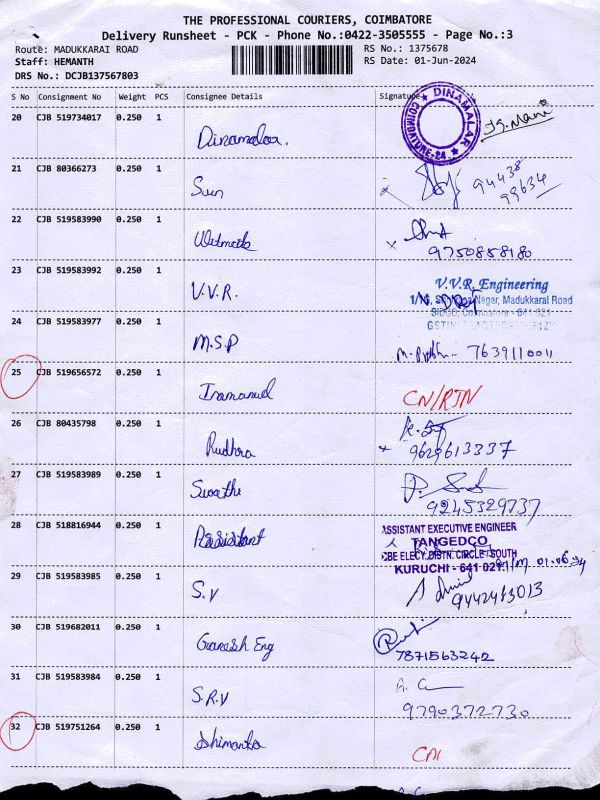 THE PROFESSIONAL COURIERS, COIMBATORE
Delivery Runsheet - PCK - Phone No.:0422-3505555 - Page No.:3
Route: MADUKKARAI ROAD RS No.: 1375678
Staff: HEMANTH RS Date: 01-Jun-2024
DRS No.: DCJB137567803
S No Consignment No Weight PCS Consignee Details Signature
DINAMALAR
COIMBATORE-24
20 CJB 519734017 0.250 1 Dinamalar.
21 CJB 80366273 0.250 1 Sun 94438
99634
22 CJB 519583990 0.250 1
9750858180
23 CJB 519583992 0.250 1 V.V.R. V.V.R. Engineering
Nagar, Madukkarai Road
24 CJB 519583977 0.250 1 M.S.P 7639110011
25 CJB 519656572 0.250 1 CN/RTN
26 CJB 80435798 0.250 1 Rudhra
9629613337
27 CJB 519583989 0.250 1 Swathi
9245329737
28 CJB 518816944 0.250 1 Assistant ASSISTANT EXECUTIVE ENGINEER
TANGEDCO
CBE ELECY.DISTN. CIRCLE SOUTH
KURUCHI - 641 021.
29 CJB 519583985 0.250 1 S.V
9442413013
30 CJB 519682011 0.250 1 Ganesh Eng
7871563242
31 CJB 519583984 0.250 1 S.R.V
9790372730
32 CJB 519751264 0.250 1